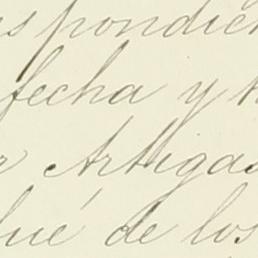 spondien
fecha y
Artigas
lué de los